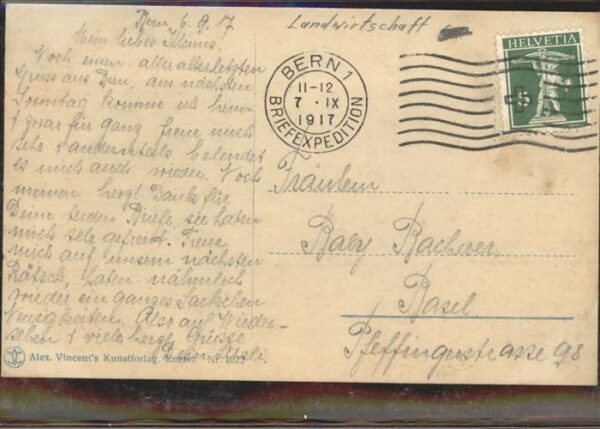 Bern, 6.9.17.
Mein liebes Kleines,
Noch einen allerallerletzten
Gruss aus Bern, am nächsten
Sonntag komme ich heim
& zwar für ganz freue mich
sehr & andernteils belendet
es mich auch wieder. Noch
meinen herzl. Dank für
Deine beiden Briefe, sie haben
mich sehr gefreut. Freue
mich auf unsern nächsten
Rätsch, haben nähmlich
wieder ein ganzes Säckchen
Neuigkeiten. Also auf Wieder-
sehen & viele herzl. Grüsse
Landwirtschaft
BERN 1
11-12
7 · IX
1917
BRIEFEXPEDITION
HELVETIA
5
Fräulein
Baly Bacherer,
Basel
Pfeffingerstrasse 98
Alex. Vincent's Kunstforlag. Eneret. Nr. 1022